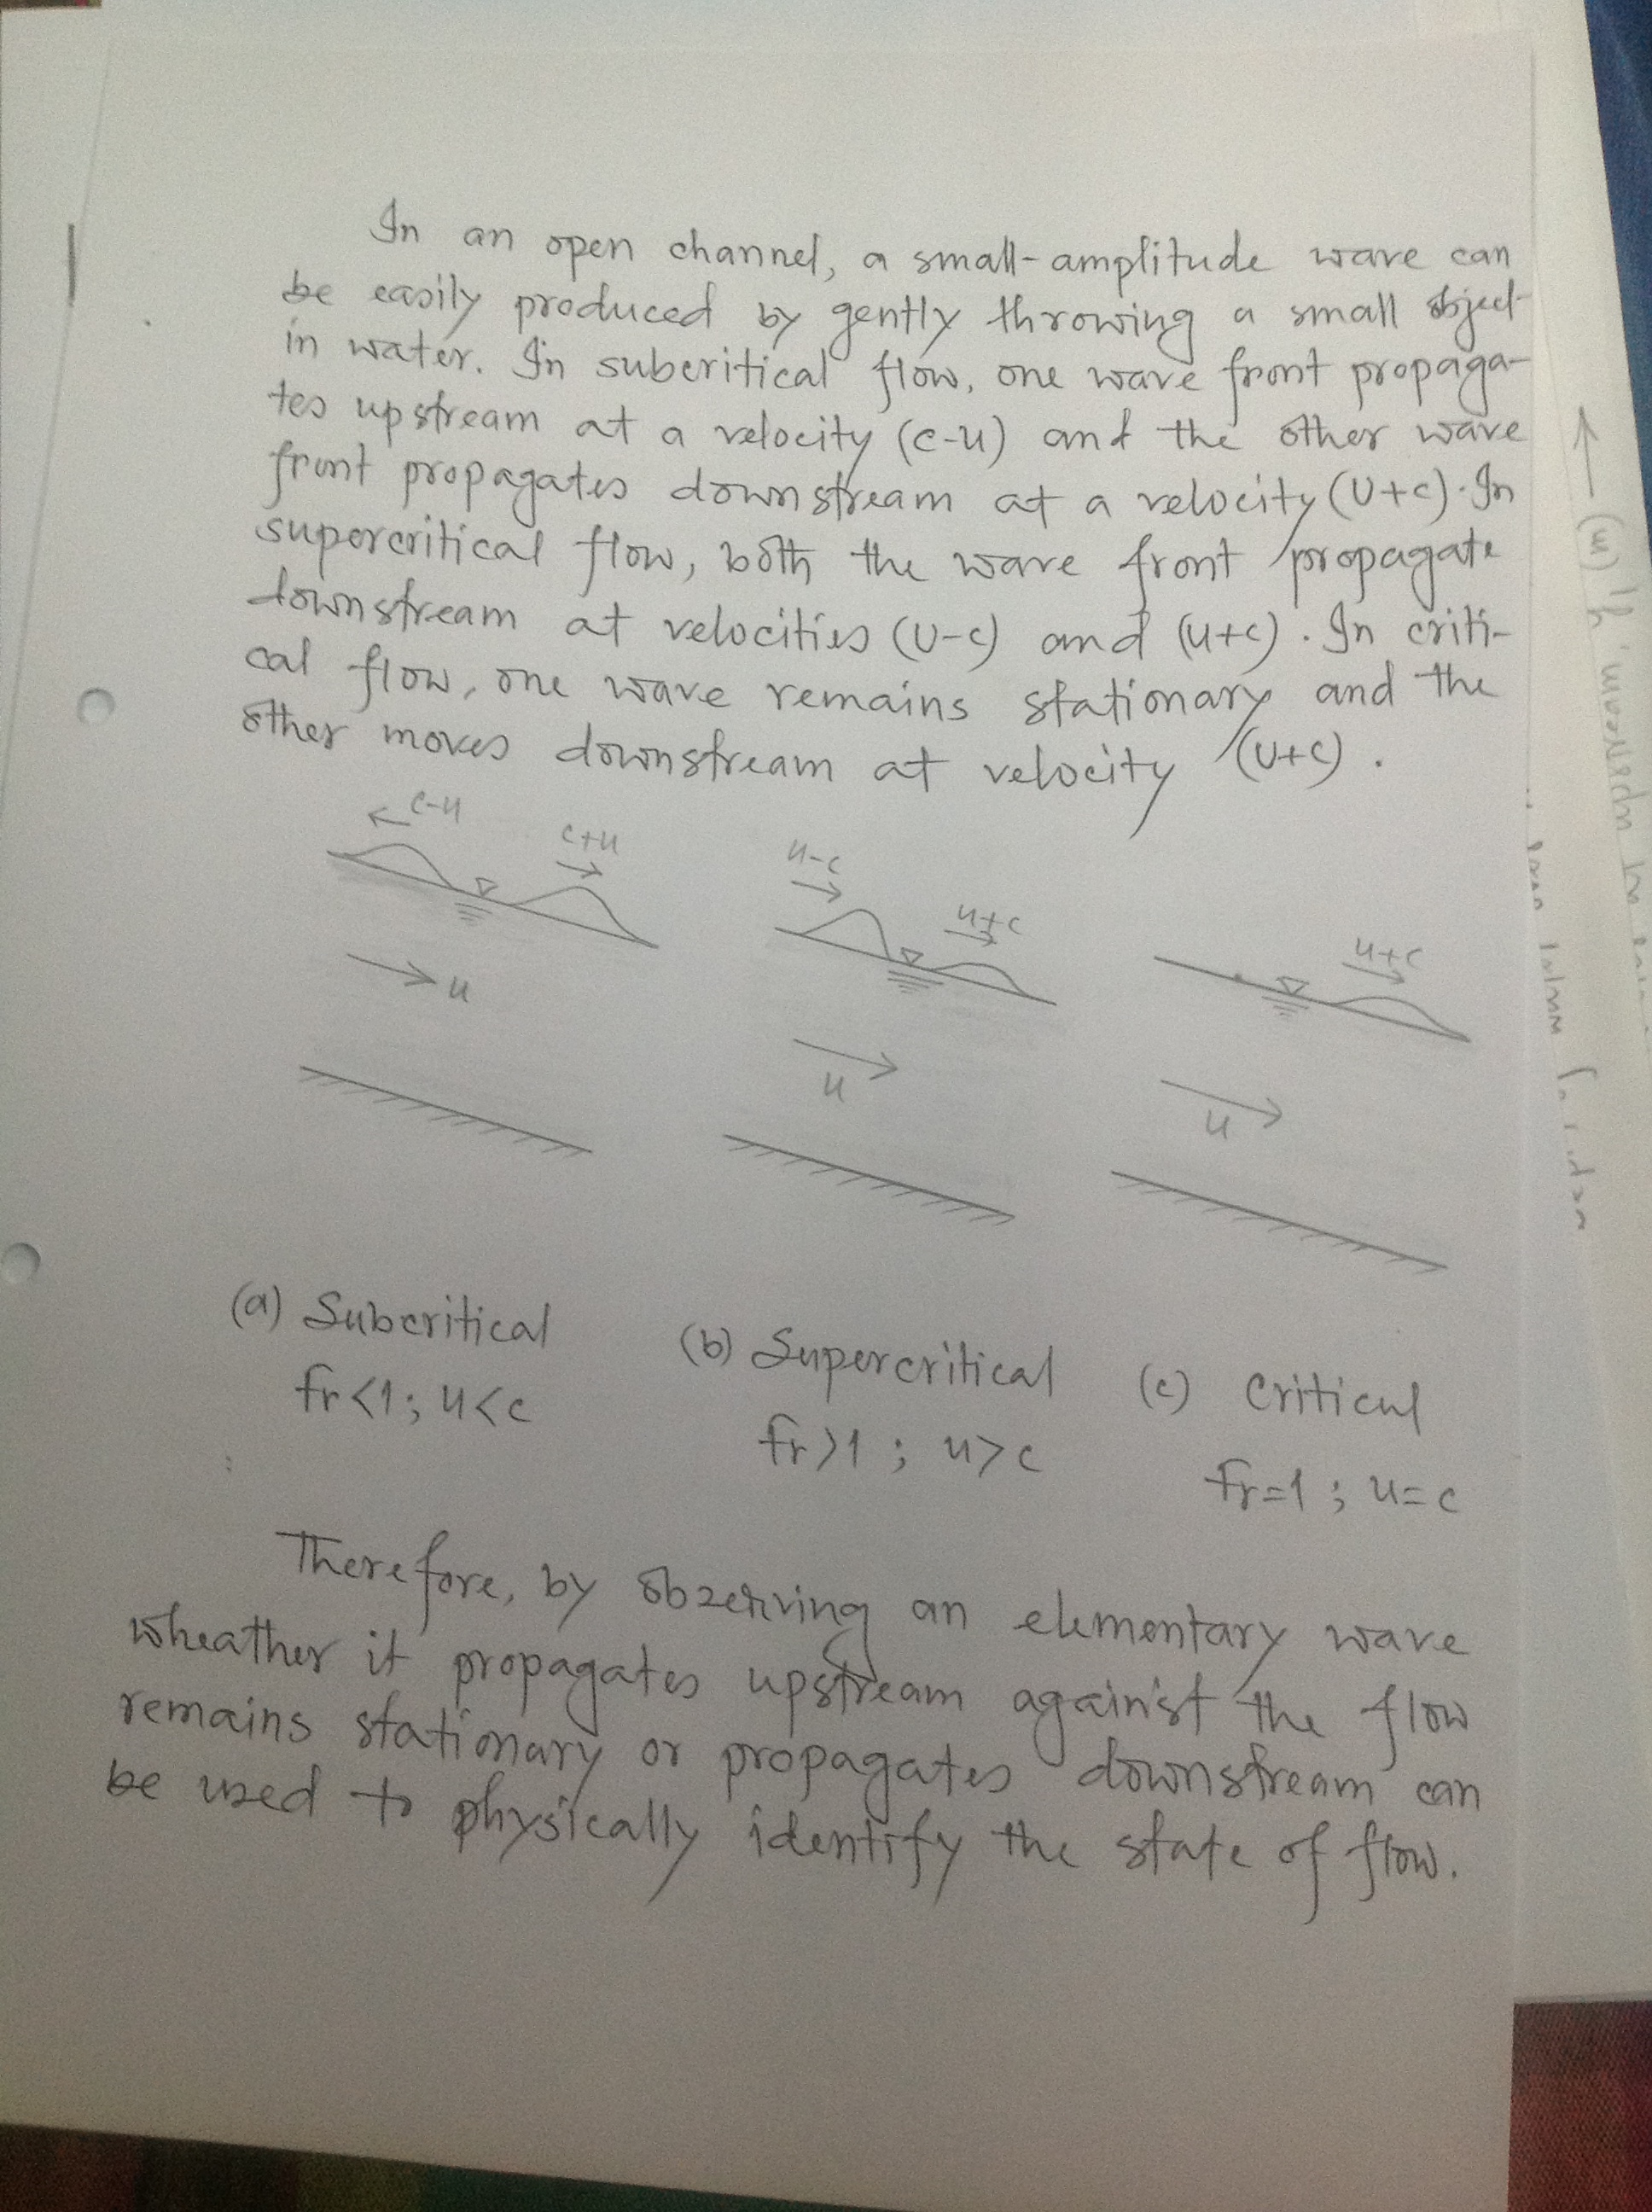 In an open channel, a small-amplitude wave can
be easily produced by gently throwing a small object
in water. In subcritical flow, one wave front propaga-
tes upstream at a velocity (c-u) and the other wave
front propagates downstream at a velocity (U+c). In
supercritical flow, both the wave front propagate
downstream at velocities (U-c) and (u+c). In criti-
cal flow, one wave remains stationary and the
other moves downstream at velocity (U+c).
c-u
c+u
u-c
u+c
u+c
u
u
u
(a) Subcritical
(b) Supercritical
(c) Critical
fr<1; u<c
fr>1; u>c
Fr=1; u=c
Therefore, by observing an elementary wave
wheather it propagates upstream against the flow
remains stationary or propagates downstream can
be used to physically identify the state of flow.